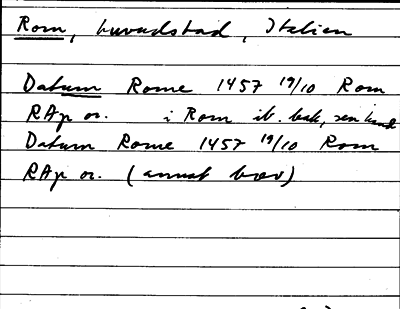 Rom, huvudstad, Italien
Datum Rome 1457 19/10 Rom
RAp or. i Rom ib. bak, sen hand
Datum Rome 1457 19/10 Rom
RAp or. (annat brev)